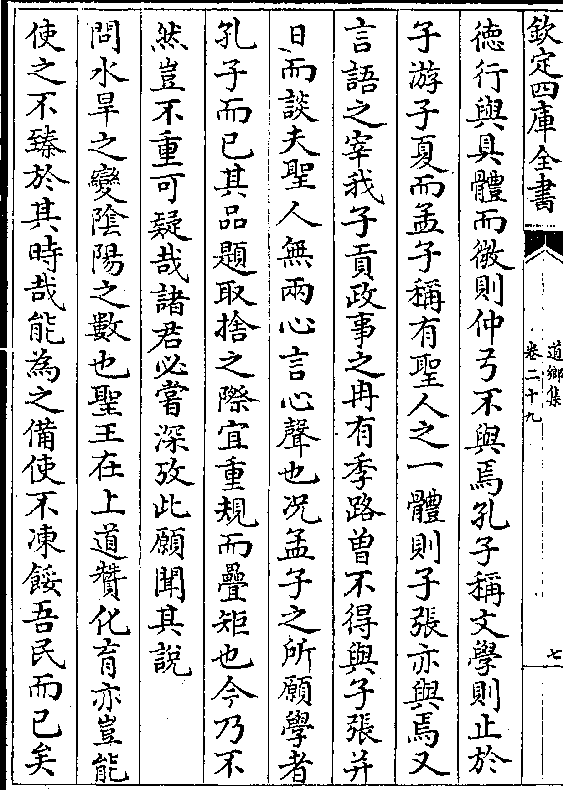 欽定四庫全書
道鄉集
卷二十九
七
德行與具體而微則仲弓不與焉孔子稱文學則止於
子游子夏而孟子稱有聖人之一體則子張亦與焉又
言語之宰我子貢政事之冉有季路曾不得與子張并
日而談夫聖人無兩心言心聲也况孟子之所願學者
孔子而已其品題取捨之際宜重規而疊矩也今乃不
然豈不重可疑哉諸君必嘗深攷此願聞其說
問水旱之變陰陽之數也聖王在上道贊化育亦豈能
使之不臻於其時哉能為之備使不凍餒吾民而已矣